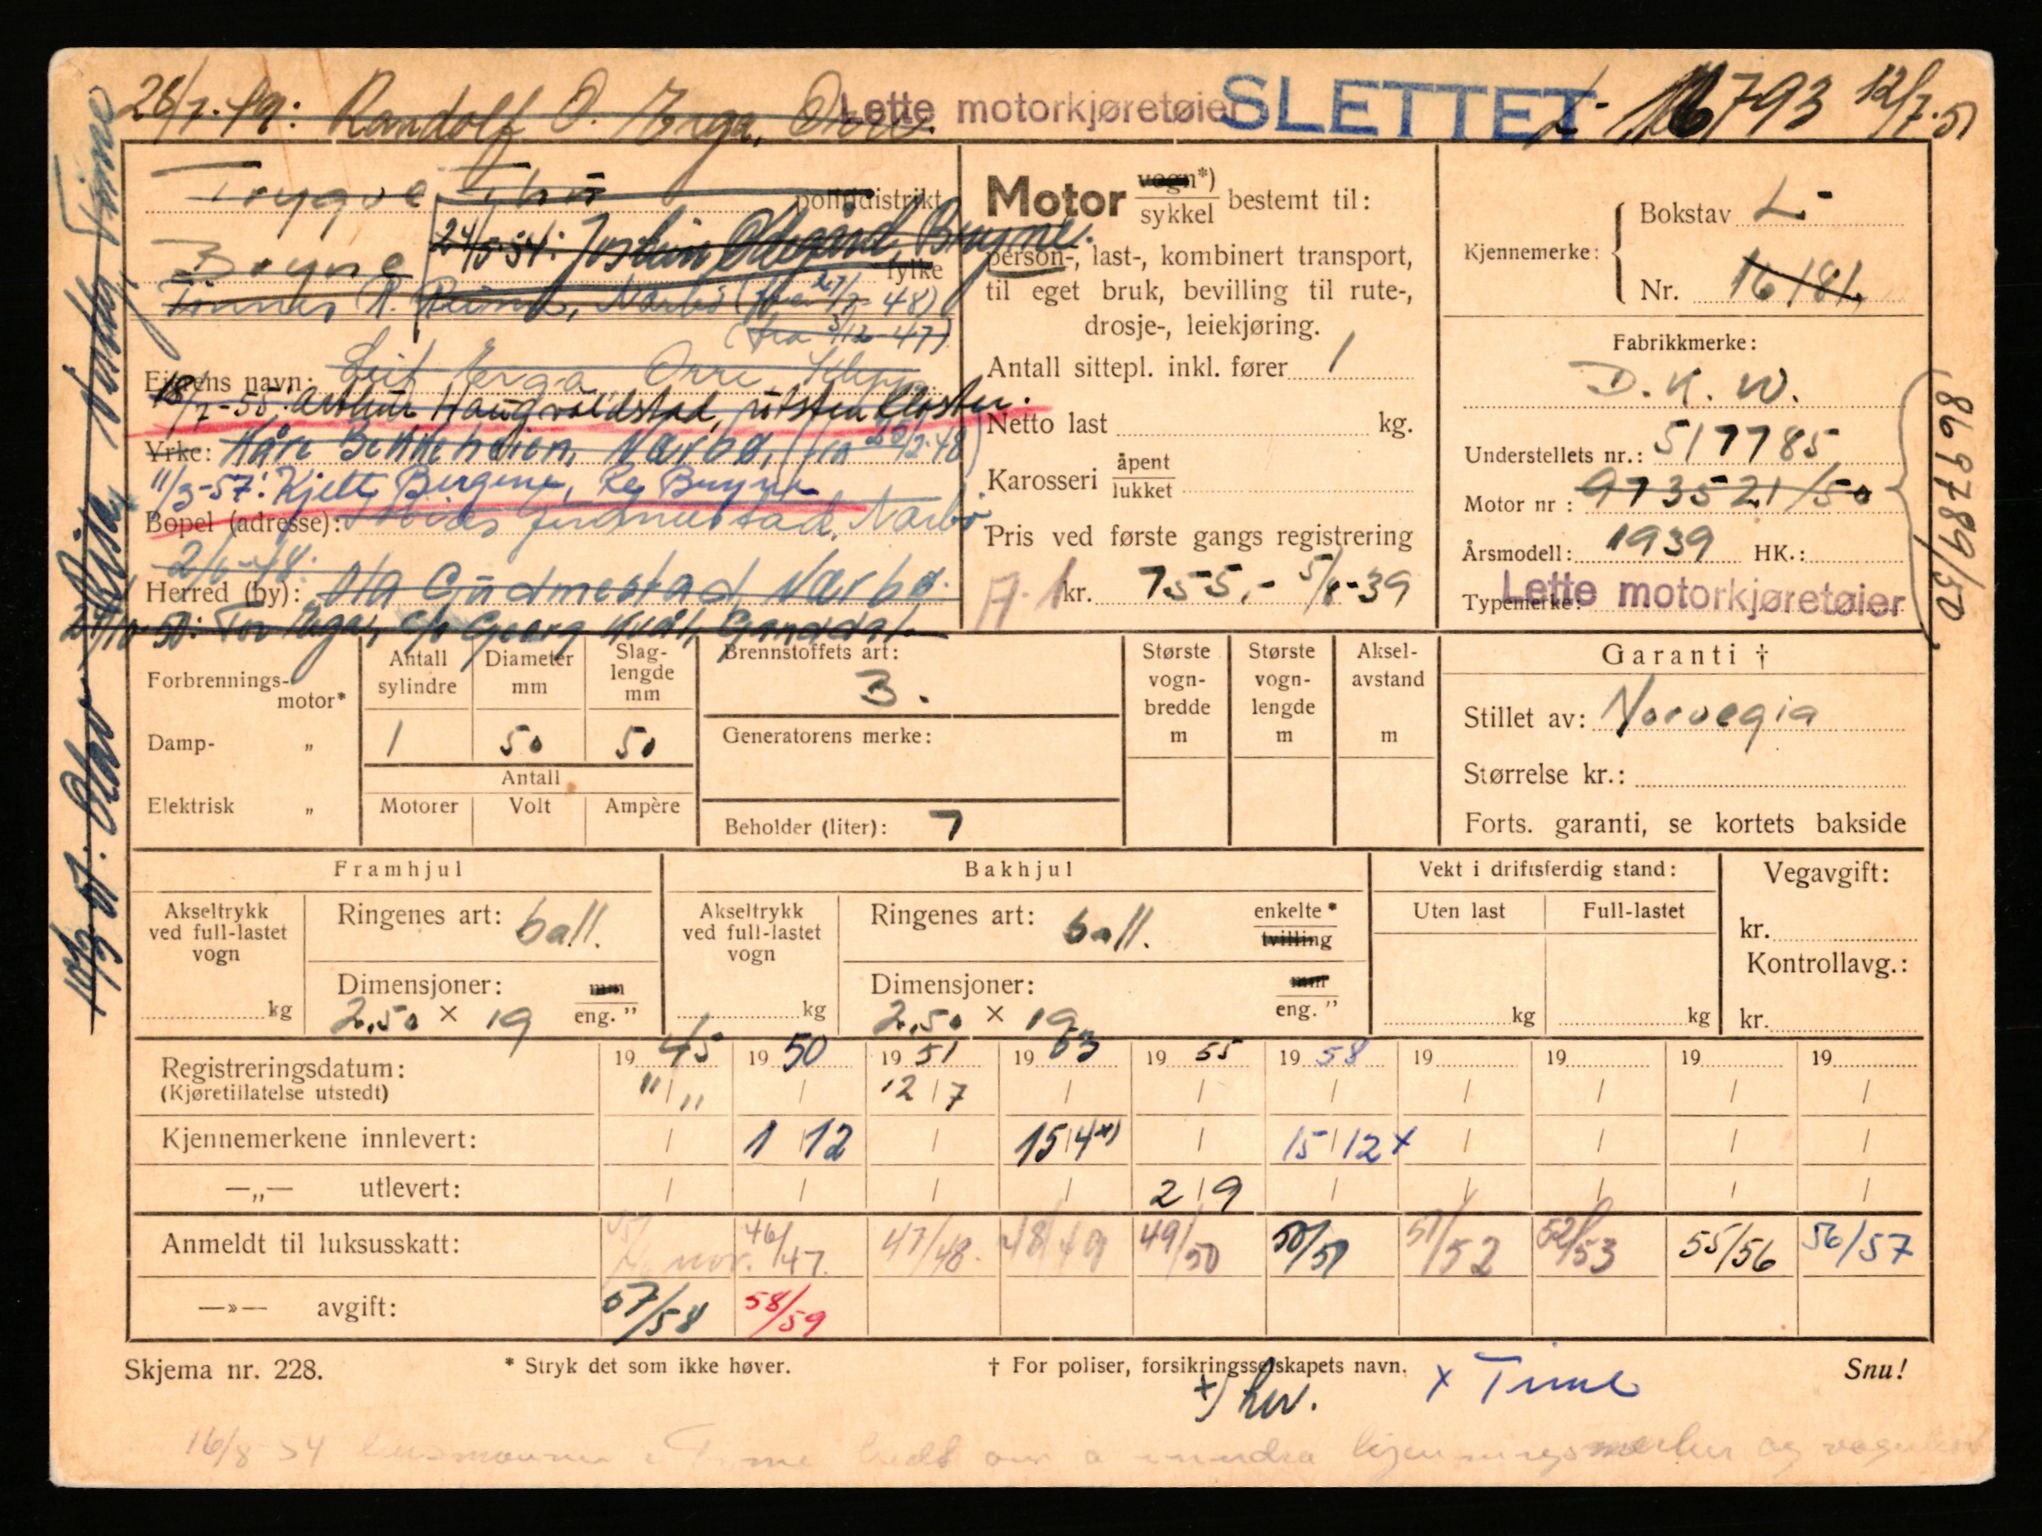 28/7-49: Randolf O. Erga, Orre.
Lette motorkjøretøier
SLETTET
L- 16793 12/7-51
Trygve
politidistrikt
24/5-54: Bryne.
Bryne
fylke
Tønnes R. Reime, Nærbø (fra 27/7-48)
(fra 5/12-47)
Eierens navn: Leif Erga Orre, Klepp
18/7-55: Arthur Haugvaldstad, Utstein Kloster.
Yrke: Kåre Bekkeheien, Nærbø, (fra 28/2-48)
11/3-57: Kjell Bergene, Re, Bryne
Bopel (adresse): Gudmestad, Nærbø
2/6-48:
Herred (by): Ola Gudmestad Nærbø.
50: Tor Erga, c/o Georg Kvål, Ganddal.
10/3-51: Olav
Time
Motor vogn*)
sykkel bestemt til:
person-, last-, kombinert transport,
til eget bruk, bevilling til rute-,
drosje-, leiekjøring.
Antall sittepl. inkl. fører 1
Netto last kg.
Karosseri åpent
lukket
Pris ved første gangs registrering
A.1 kr. 755,- 5/8-39
Kjennemerke: Bokstav L-
Nr. 16181
Fabrikkmerke:
D.K.W.
Understellets nr.: 517785
Motor nr: 973521/50
869789/50
Årsmodell: 1939 HK.:
Typemerke:
Lette motorkjøretøier
Forbrennings-
motor*
Damp- „
Elektrisk „
Antall sylindre
1
Diameter mm
50
Slag-
lengde
mm
50
Antall
Motorer Volt Ampère
Brennstoffets art:
B.
Generatorens merke:
Beholder (liter): 7
Største
vogn-
bredde
m
Største
vogn-
lengde
m
Aksel-
avstand
m
Garanti †
Stillet av: Norvegia
Størrelse kr.:
Forts. garanti, se kortets bakside
Framhjul
Akseltrykk
ved full-lastet
vogn
kg
Ringenes art: ball.
Dimensjoner: mm
2,50 × 19 eng. "
Bakhjul
Akseltrykk
ved full-lastet
vogn
kg
Ringenes art: ball. enkelte*
tvilling
Dimensjoner: mm
2,50 × 19 eng. "
Vekt i driftsferdig stand:
Uten last Full-lastet
kg kg
Vegavgift:
kr.
Kontrollavg.:
kr.
Registreringsdatum: 1945 1950 1951 1953 1955 1958 19 19 19 19
(Kjøretillatelse utstedt) "/" / 12/7 / / / / / / /
Kjennemerkene innlevert: / 1/12 / 15/4 *) / 15/12 x / / / /
—„— utlevert: / / / / 2/9 / / / / /
Anmeldt til luksusskatt: nov. 46/47. 47/48. 48/49 49/50 50/51 51/52 52/53 55/56 56/57
—»— avgift: 57/58 58/59
Skjema nr. 228.
* Stryk det som ikke høver.
† For poliser, forsikringsselskapets navn.
Snu!
x Time
16/8-54 lensmannen i Time bedt om å inndra kjenningsmerker og vognkort